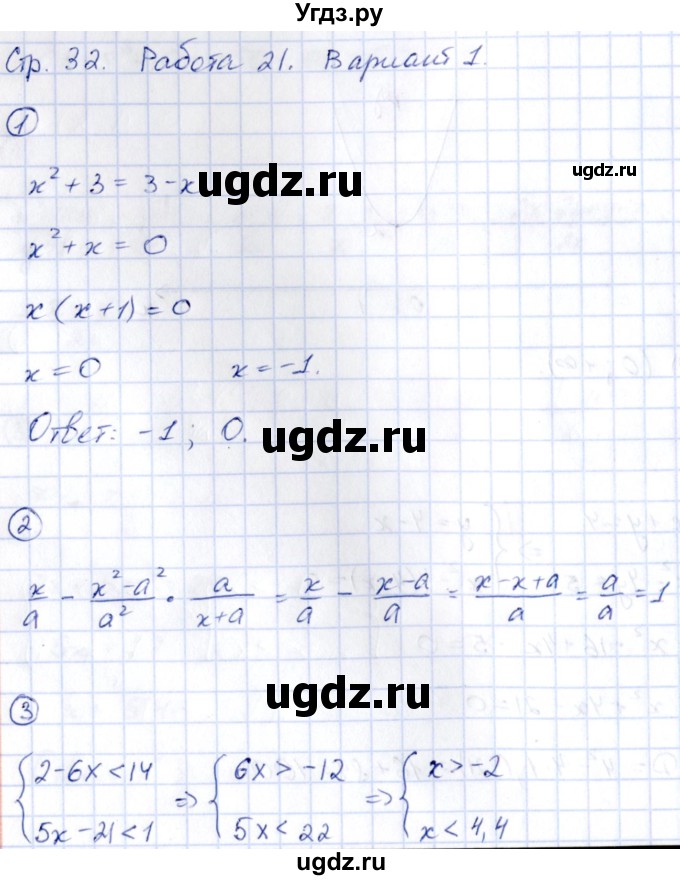 Угдз.ру
Стр. 32. Работа 21. Вариант 1.
1
x² + 3 = 3 - x
ugdz.ru
ugdz.ru
x² + x = 0
x (x+1) = 0
x = 0 x = -1.
Ответ: -1; 0.
ugdz.ru
ugdz.ru
2
x/a - (x²-a²)/a² · a/(x+a) = x/a - (x-a)/a = (x-x+a)/a = a/a = 1
ugdz.ru
ugdz.ru
3
{2-6x<14 => {6x>-12 => {x>-2
5x-21<1 5x<22 x<4,4
ugdz.ru